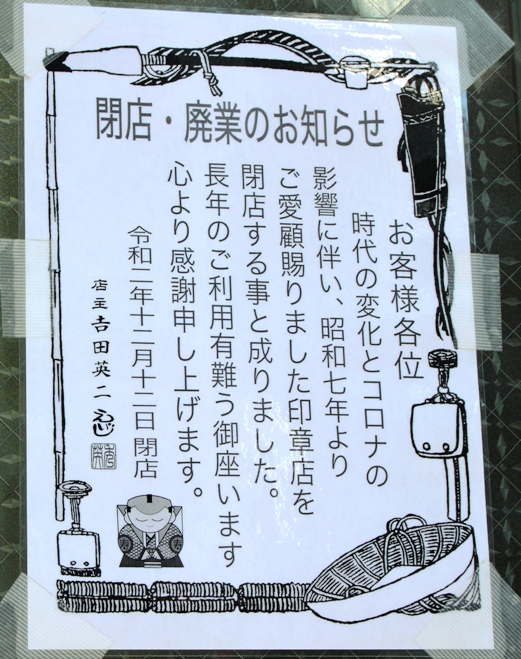 閉店・廃業のお知らせ
お客様各位
時代の変化とコロナの
影響に伴い、昭和七年より
ご愛顧賜りました印章店を
閉店する事と成りました。
長年のご利用有難う御座います
心より感謝申し上げます。
令和二年十二月十二日 閉店
店主 吉田英二